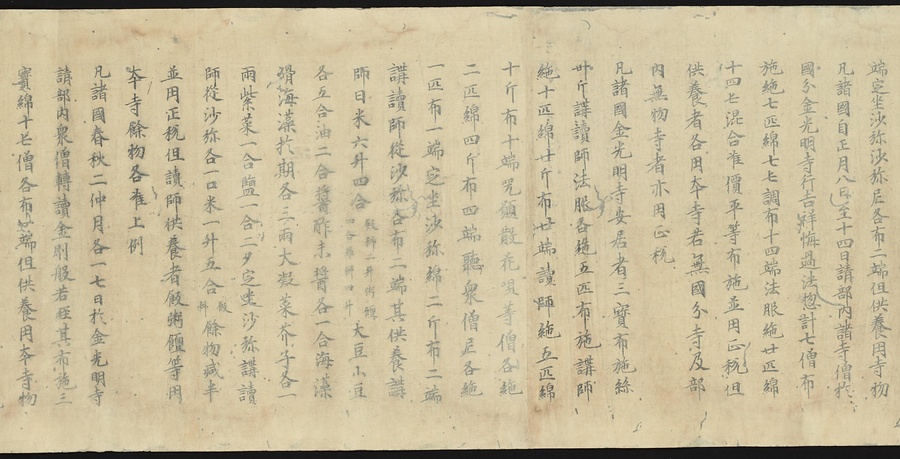 端定坐沙弥沙弥尼各布一端但供養用寺物
凡諸國自正月八日至十四日請部内諸寺僧於
國分金光明寺行吉祥悔過法惣計七僧布
施絁七匹綿七七調布十四端法服絁廿匹綿
十四七混合准價平等布施並用正税但
供養者各用本寺若無國分寺及部
内無物寺者亦用正税
凡諸國金光明寺安居者三寳布施絲
卅斤講讀師法服各絁五匹布施講師
絁十匹綿廿斤布廿端讀師絁五匹綿
十斤布十端咒願散花唄等僧各絁
二匹綿四斤布四端聽衆僧尼各絁
一匹布一端定坐沙弥綿二斤布二端
講讀師從沙弥各布二端其供養講
師日米六升四合 大豆小豆
各五合油二合醬酢未醬各一合海藻
滑海藻於期各三兩大凝菜芥子各一
兩紫菜一合鹽一合二夕定坐沙弥講讀
師從沙弥各一口米一升五合 餘物減半
並用正税但講師供養者飯粥饘等用
本寺餘物各准上例
凡諸國春秋二仲月各一七日於金光明寺
請部内衆僧轉讀金剛般若經其布施三
寳綿十七僧各布一端但供養用本寺物